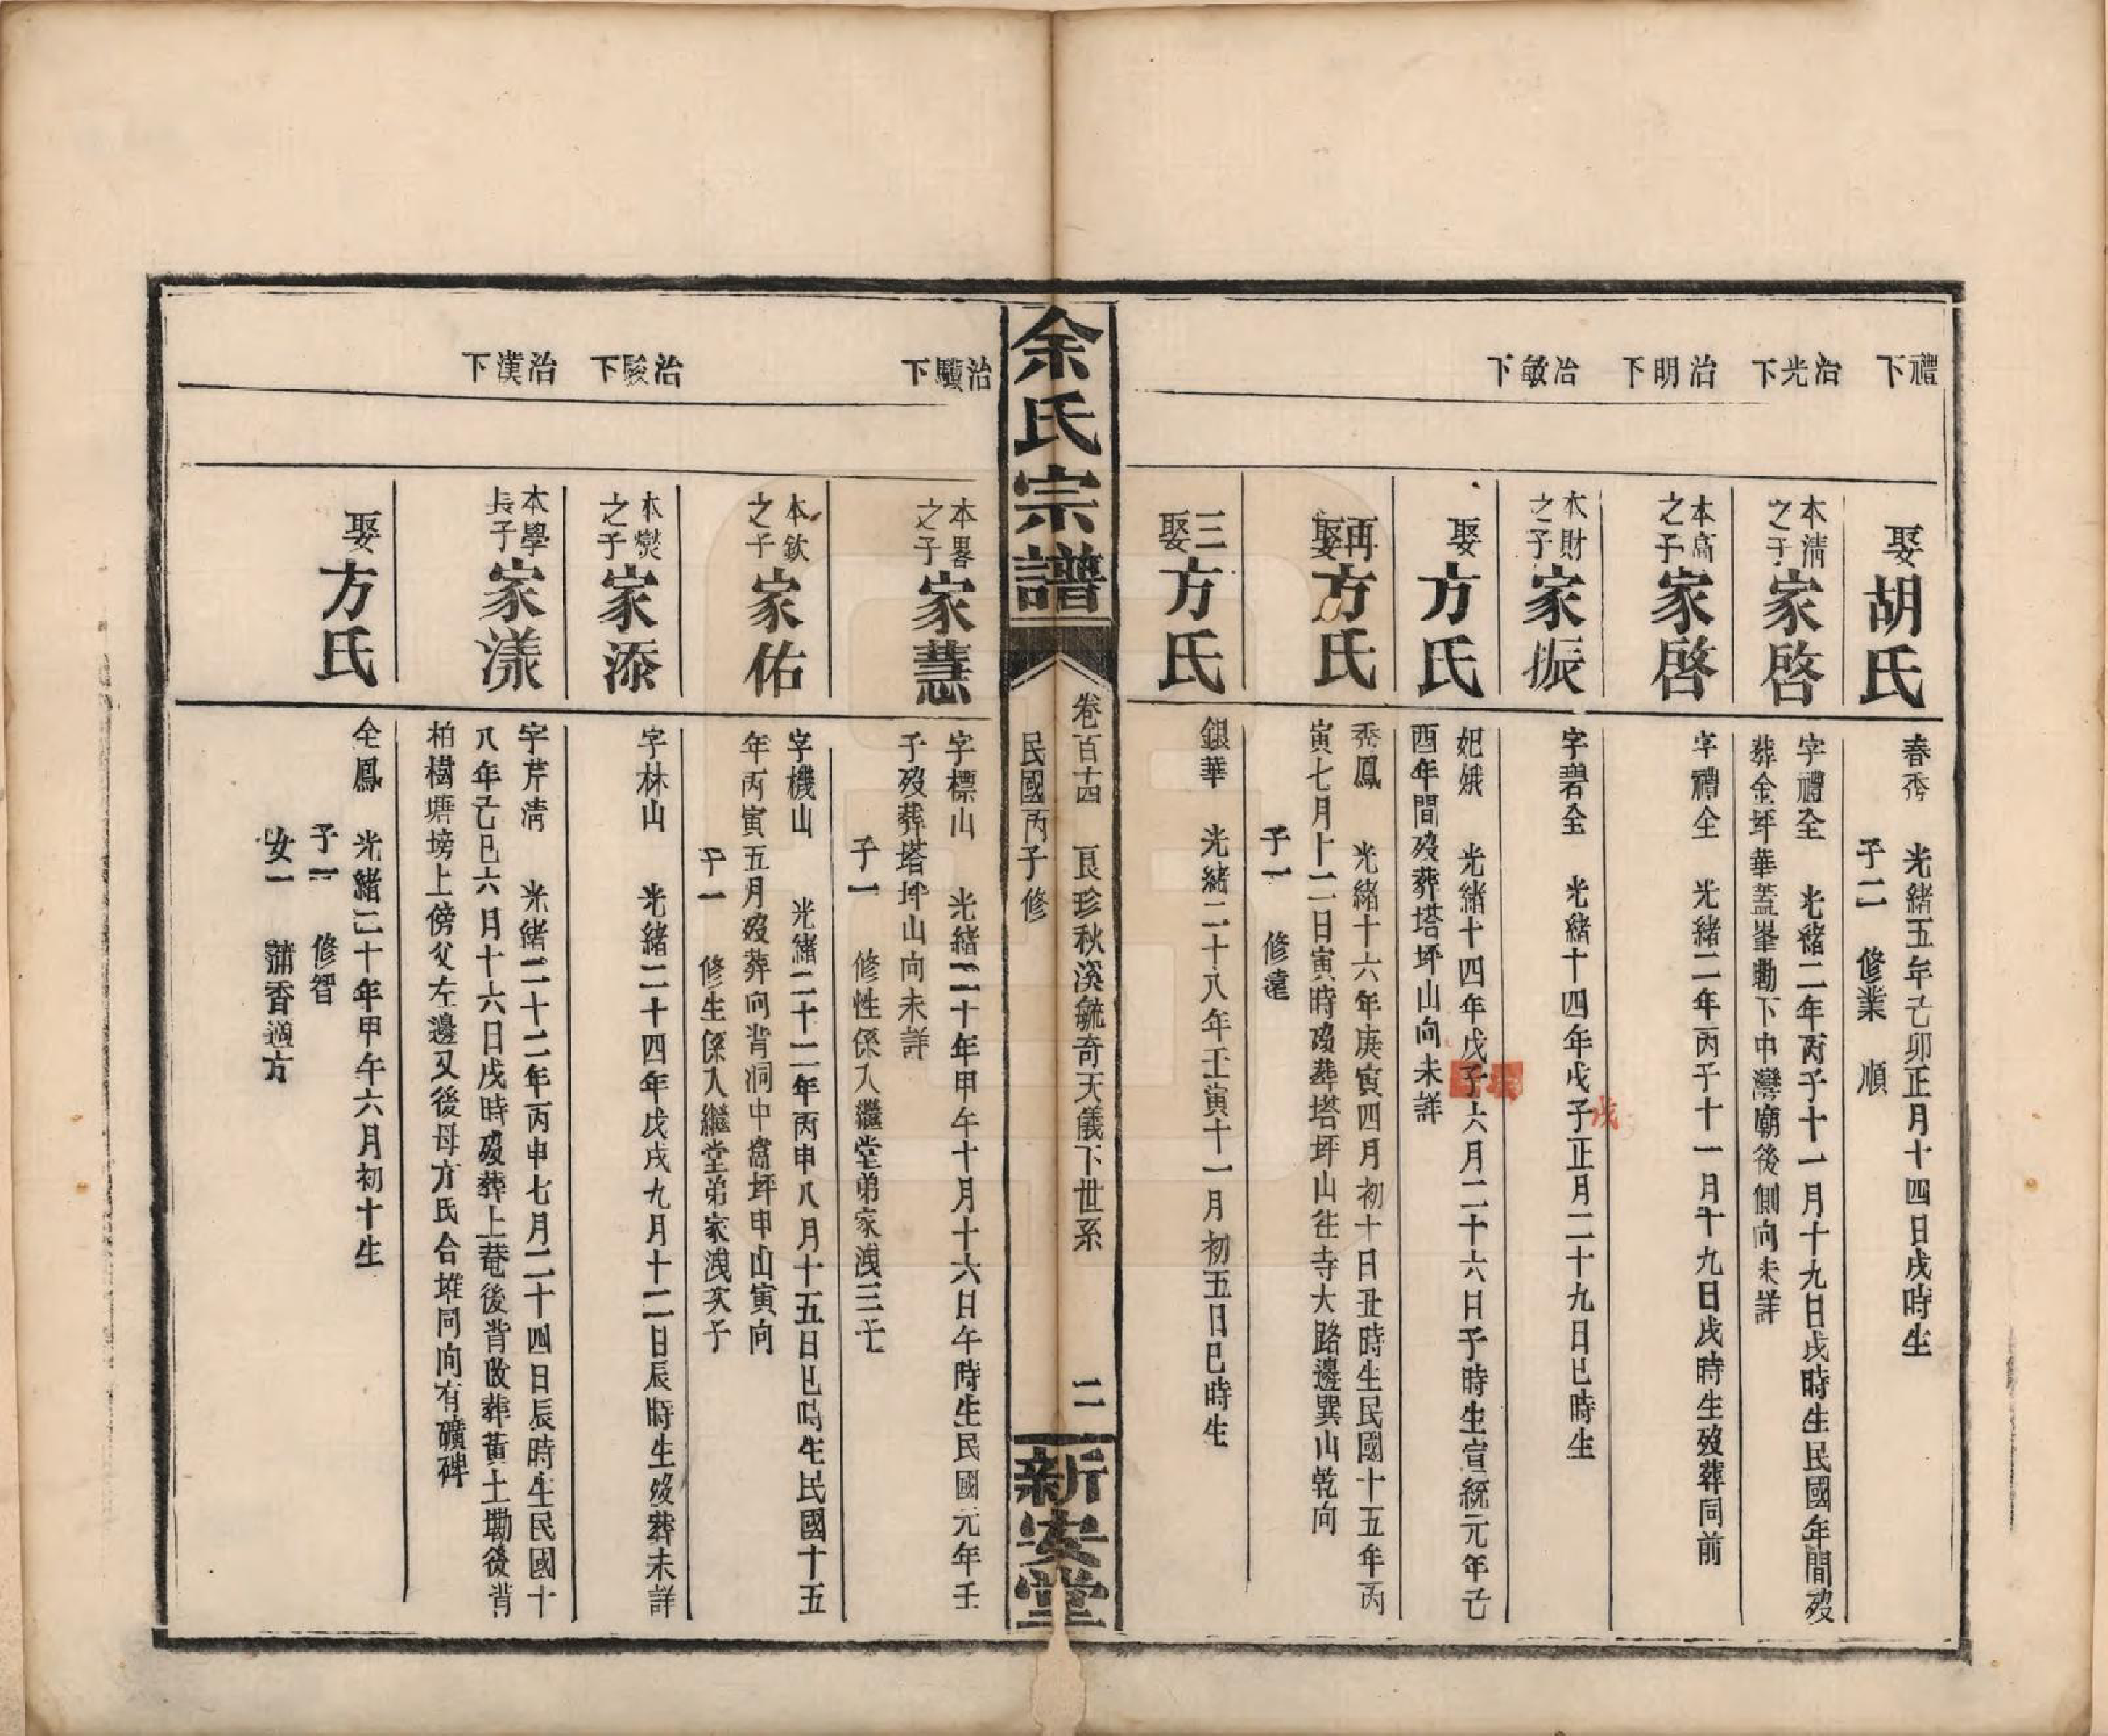 禮下
治光下
治明下
治敏下
娶胡氏
春秀　光緒五年己卯正月十四日戌時生
子二　修業　順
本淸之子家啓
字禮全　光緒二年丙子十一月十九日戌時生民國年間歿
葬金坪華蓋峯勘下中灣廟後側向未詳
本高之子家啓
字禮全　光緒二年丙子十一月十九日戌時生歿葬同前
本財之子家振
字碧全　光緒十四年戊子正月二十九日巳時生
娶方氏
妃娥　光緒十四年戊子六月二十六日子時生宣統元年己
酉年間歿葬塔坪山向未詳
再娶方氏
秀鳳　光緒十六年庚寅四月初十日丑時生民國十五年丙
寅七月十二日寅時歿葬塔坪山往寺大路邊巽山乾向
子一　修遠
三娶方氏
銀華　光緒二十八年壬寅十一月初五日巳時生
余氏宗譜
卷百十四　良珍秋溪毓奇天儀下世系　二
民國丙子修
新安堂
治驥下
治駿下
治漢下
本畧之子家慧
字標山　光緒二十年甲午十月十六日午時生民國元年壬
子歿葬塔坪山向未詳
子一　修性係入繼堂弟家洩三子
本欽之子家佑
字機山　光緒二十二年丙申八月十五日巳時生民國十五
年丙寅五月歿葬向背洞中窩坪申山寅向
子一　修生係入繼堂弟家洩次子
本爕之子家添
字林山　光緒二十四年戊戌九月十二日辰時生歿葬未詳
本學長子家漾
字芹淸　光緒二十二年丙申七月二十四日辰時生民國十
八年己巳六月十六日戌時歿葬上菴後背改葬黃土勘後背
柏樹塘塝上傍父左邊又後母方氏合堆同向有礦碑
娶方氏
全鳳　光緒二十年甲午六月初十生
子一　修智
女一　蒲香適方